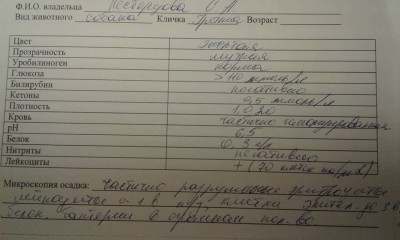 Ф.И.О. владельца Нестерцова О.А
Вид животного собака Кличка Возраст
Цвет желтая
Прозрачность мутная
Уробилиноген норма
Глюкоза >110 ммоль/л
Билирубин негативно
Кетоны 0,5 ммоль/л
Плотность 1.020
Кровь частично гемолизированная
pH 6,5
Белок 0,3 г/л
Нитриты негативно
Лейкоциты + (70 клеток
Микроскопия осадка: частично разрушенные эритроциты
лейкоциты 0-1 в п/з клетки эпител-
бактерии в огромном кол-во